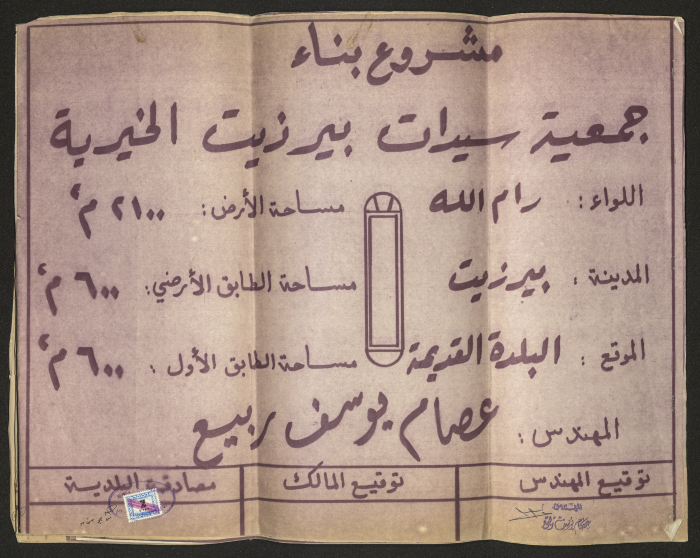 مشروع بناء
جمعية سيدات بيرزيت الخيرية
اللواء: رام الله
مساحة الأرض: ٢١٠٠ م٢
المدينة: بيرزيت
مساحة الطابق الأرضي: ٦٠٠ م٢
الموقع: البلدة القديمة
مساحة الطابق الأول: ٦٠٠ م٢
المهندس: عصام يوسف ربيع
توقيع المهندس
توقيع المالك
مصادقة البلدية
المهندس